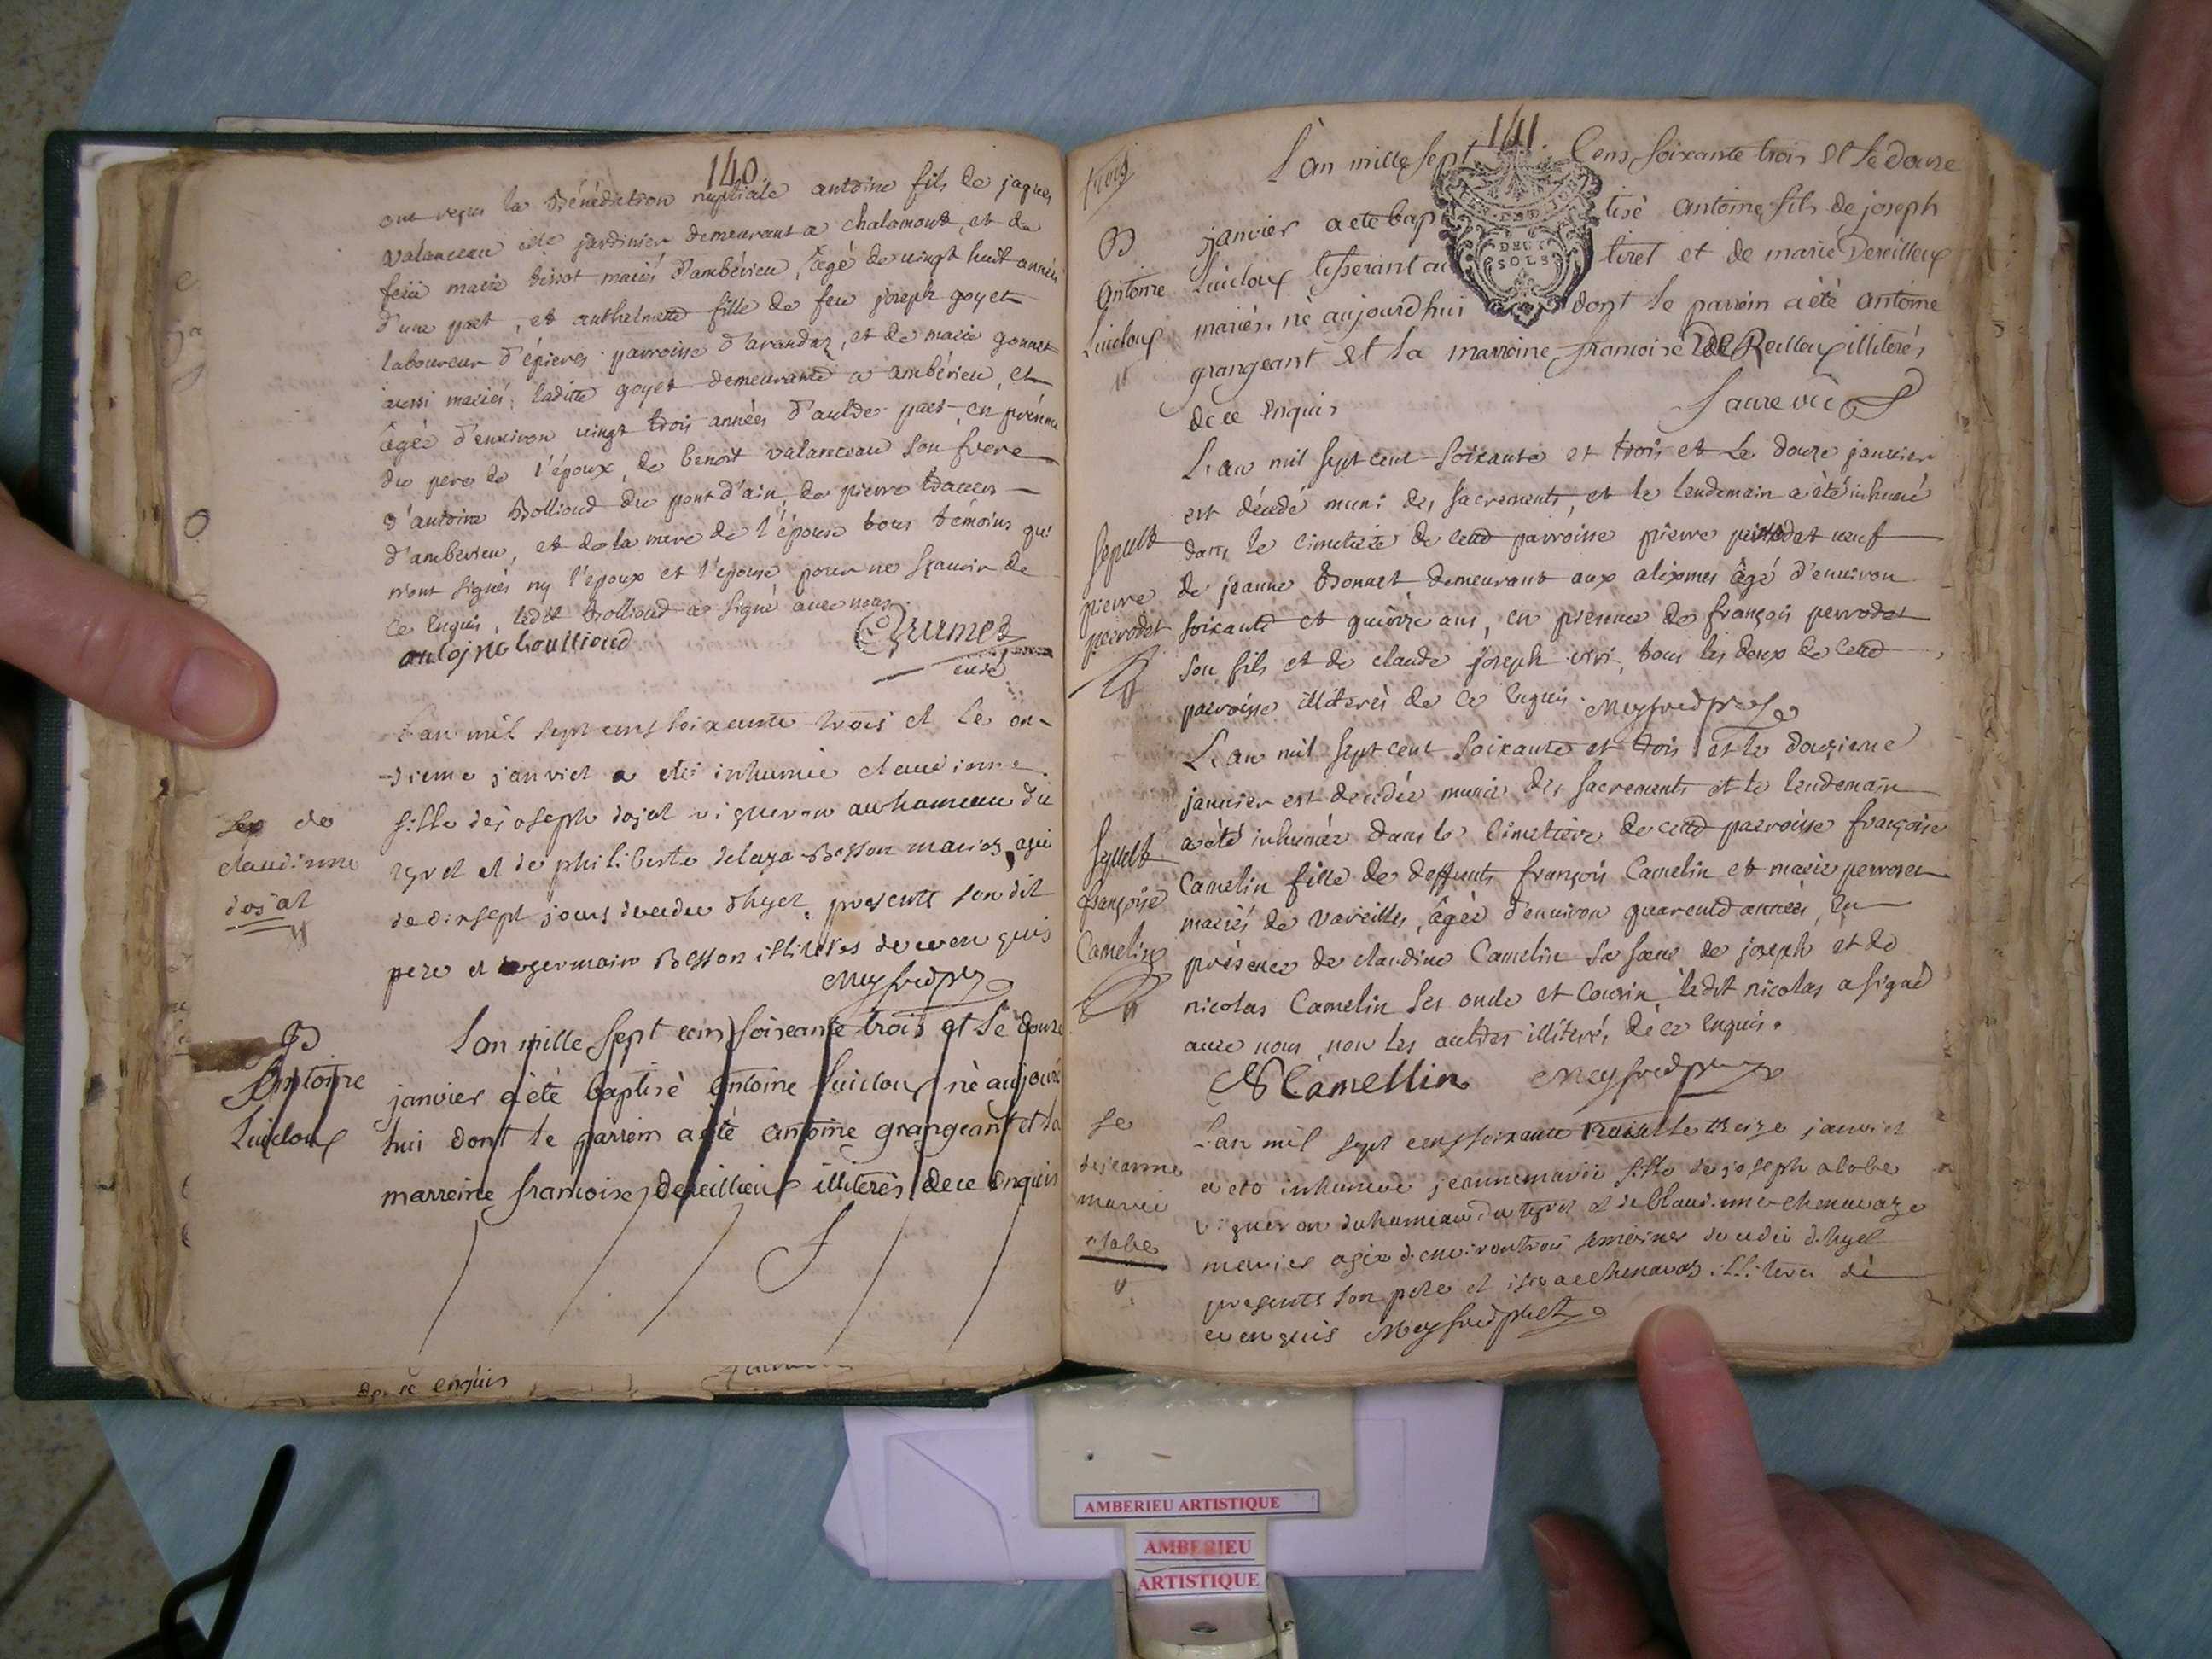 140
ont reçu la Bénédiction nuptiale antoine fils de jaques
valanceau jardinier demeurant a chalamont, et de
feüe marie tissot mariés d'ambérieu, âgé de vingt huit années
d'une part, et anthelmette fille de feu joseph goyet
laboureur d'épieres parroisse d'arandaz, et de marie gonnet
aussi mariés, ladite goyet demeurante a ambérieu, et
âgée d'environ vingt trois années d'autre part, en présence
du pere de l'époux, de benoit valanceau son frere
d'antoine Bolliond du pont d'ain, de pierre
d'ambérieu, et de la mere de l'épouse tous témoins qui
n'ont signés ny l'epoux et l'epouse pour ne sçavoir de
ce enquis, ledit Bolliond a signé avec nous.
antojne boulliond
curé
L'an mil sept cens soixante trois et le on-
-zieme janvier a été inhumée claudinne
fille de joseph dojat vigneron au hameau du
tyret et de philiberte Besson mariez, agée
de dixsept jours decedee d'hyer, presents son dit
pere et germain Besson illiteres de ce enquis
Meyfred ptre
Sep de
claudinne
dojat
B
Antoine
Luiclouf
L'an mille sept cens soixante trois et le douze
janvier a été baptisé Antoine Luiclouf né aujourd
hui dont le parrein a été antoine grangeant et la
marreine francoise dereillieuf illiterés de ce enquis
de ce enquis
141.
L'an mille sept Cens soixante trois et le douze
janvier a été bap tisé antoine fils de joseph
Luiclouf tisserant au tiret et de marie Dereilleuf
mariés, né aujourdhui dont le parrein a été antoine
grangeant et la marreine francoise DeReilleuf illiterés
de ce enquis
DEUX
SOLS
B
Antoine
Luiclouf
L'an mil sept cent soixante et trois et le douze janvier
est décédé muni des sacrements, et le lendemain a été inhumé
dans le cimetière de cette parroisse pierre perrodet veuf
de jeanne Bonnet demeurant aux alixmes âgé d'environ
soixante et quinze ans, en présence de françois perrodet
son fils et de claude joseph vivi, tous les deux de cette
parroisse illiterés de ce enquis. Meyfred ptre
Sepult
pierre
perrodet
L'an mil sept cent soixante et trois et le douzieme
janvier est décédée munie des sacrements et le lendemain
a été inhumée dans le cimetière de cette parroisse françoise
Camelin fille de deffunts françois Camelin et marie perrozet
mariés de Vareilles, âgée d'environ quarente années, en
présence de claudine Camelin sa sœur de joseph et de
nicolas Camelin ses oncle et cousin, ledit nicolas a signé
avec nous, non les autres illiterés de ce enquis.
N Camellin Meyfred ptre
Sepult
françoise
Camelin
L'an mil sept cens soixante trois et le treize janvier
a eté inhumee jeanne marie fille de joseph alobe
vigneron du hameau du tyret et de Claudinne chenavaz
mariés agée d'environ trois semeines decedée d'hyer
presents son pere et isaac chenavaz illiteres de
ce enquis Meyfred ptre
Se
de jeanne
marie
alobe
AMBERIEU ARTISTIQUE
AMBERIEU
ARTISTIQUE